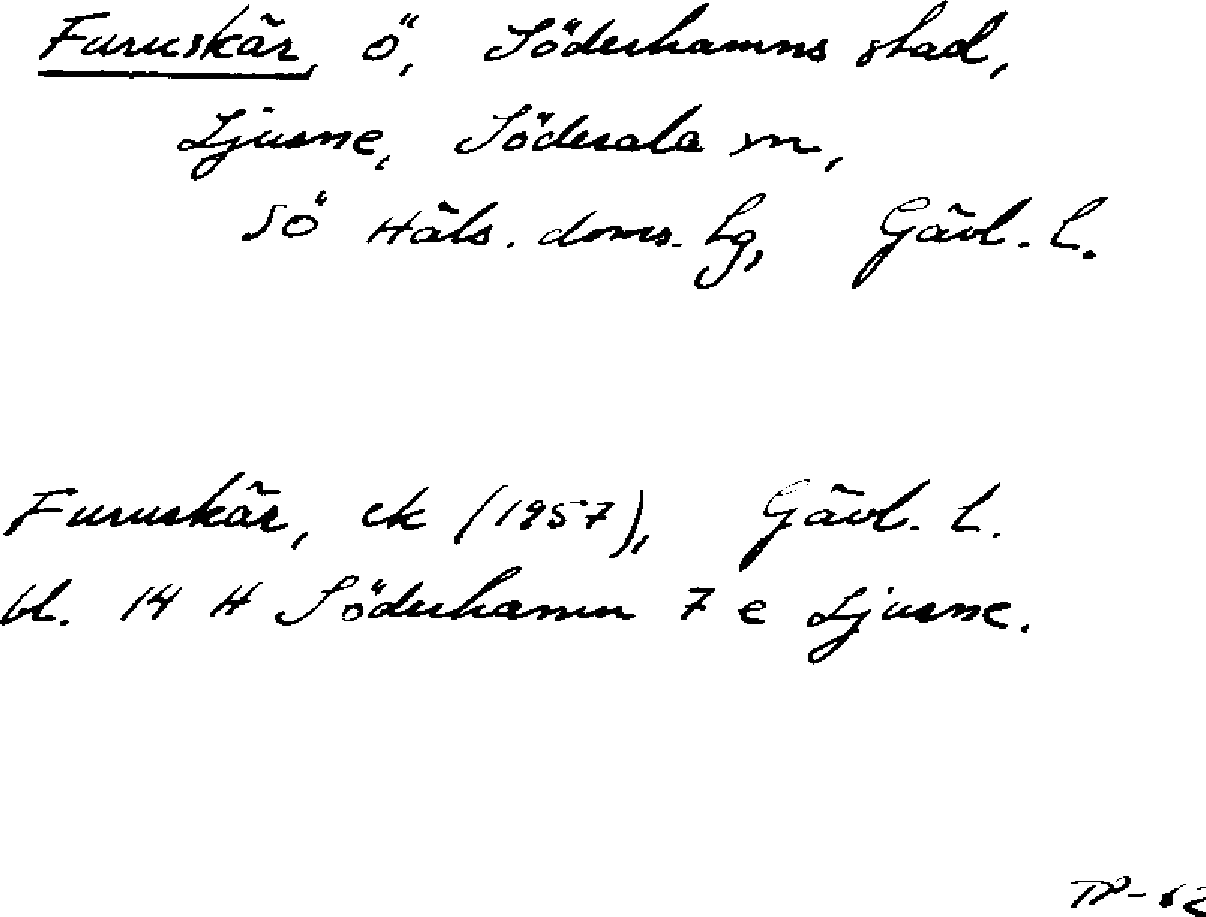 Furuskär, ö, Söderhamns stad,
Ljusne, Söderala sn,
Sö Häls. doms. lg, Gävl. l.
Furuskär, ek (1957), Gävl. l.
bl. 14 H Söderhamn 7 e Ljusne.